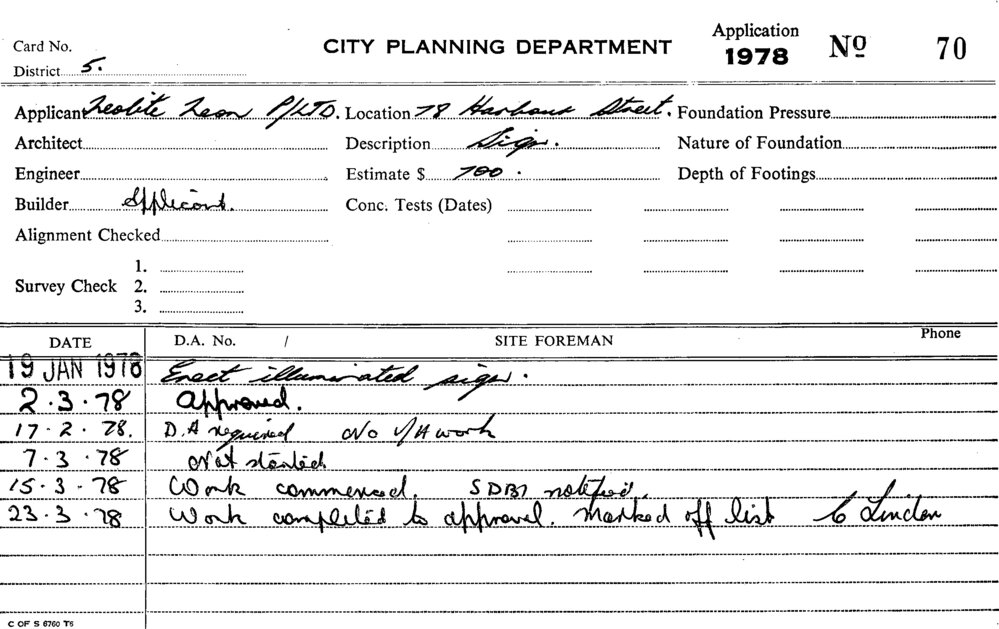 Card No. CITY PLANNING DEPARTMENT Application 1978 Nº 70
District 5.
Applicant Neolite Neon P/LTD. Location 78 Harbour Street. Foundation Pressure
Architect Description Sign. Nature of Foundation
Engineer Estimate $ 700. Depth of Footings
Builder Applicant. Conc. Tests (Dates)
Alignment Checked
1.
Survey Check 2.
3.
DATE D.A. No. / SITE FOREMAN Phone
19 JAN 1978 Erect illuminated sign.
2.3.78 Approved.
17.2.78. D.A required No work
7.3.78 Not started
15.3.78 Work commenced. notified.
23.3.78 Work completed to approval. Marked off list Linden
C OF S 6760 T5